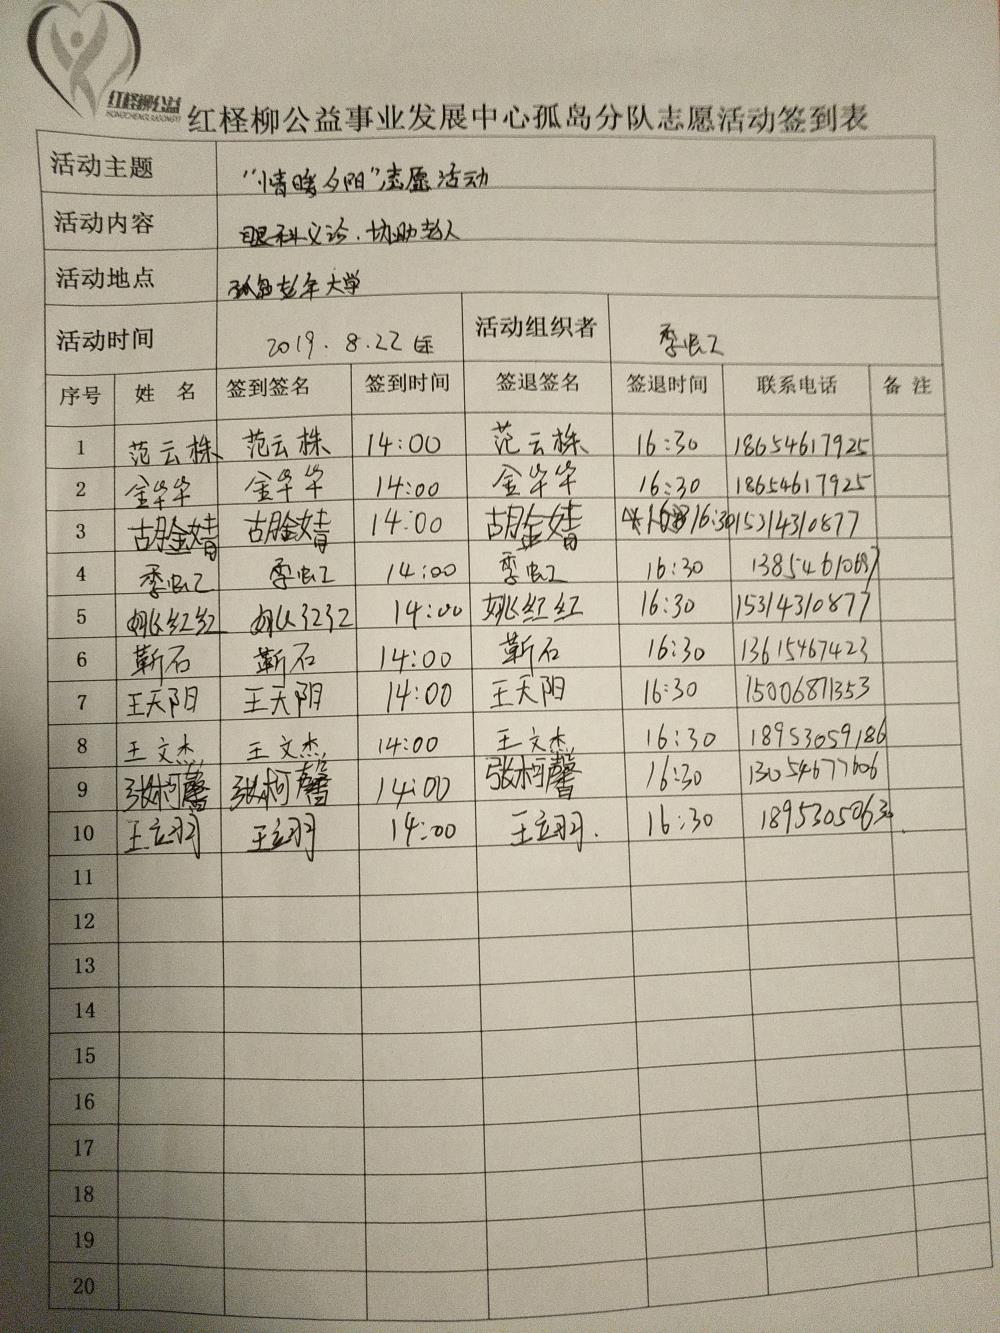 红柽柳公益
HONGCHENGLIUGONGYI
红柽柳公益事业发展中心孤岛分队志愿活动签到表
活动主题 “情暖夕阳”志愿活动
活动内容 眼科义诊.协助老人
活动地点 孤岛老年大学
活动时间 2019.8.22 活动组织者 季虹
序号 姓名 签到签名 签到时间 签退签名 签退时间 联系电话 备注
1 范云株 范云株 14:00 范云株 16:30 18654617925
2 金华华 金华华 14:00 金华华 16:30 18654617925
3 胡金婧 胡金婧 14:00 胡金婧 16:30 15314310877
4 季虹 季虹 14:00 季虹 16:30
5 姚红红 姚红红 14:00 姚红红 16:30 15314310877
6 靳石 靳石 14:00 靳石 16:30 13615467423
7 王天阳 王天阳 14:00 王天阳 16:30 15006871353
8 王文杰 王文杰 14:00 王文杰 16:30 18953059186
9 张柯馨 张柯馨 14:00 张柯馨 16:30 13054677606
10 王立羽 王立羽 14:00 王立羽. 16:30
11
12
13
14
15
16
17
18
19
20